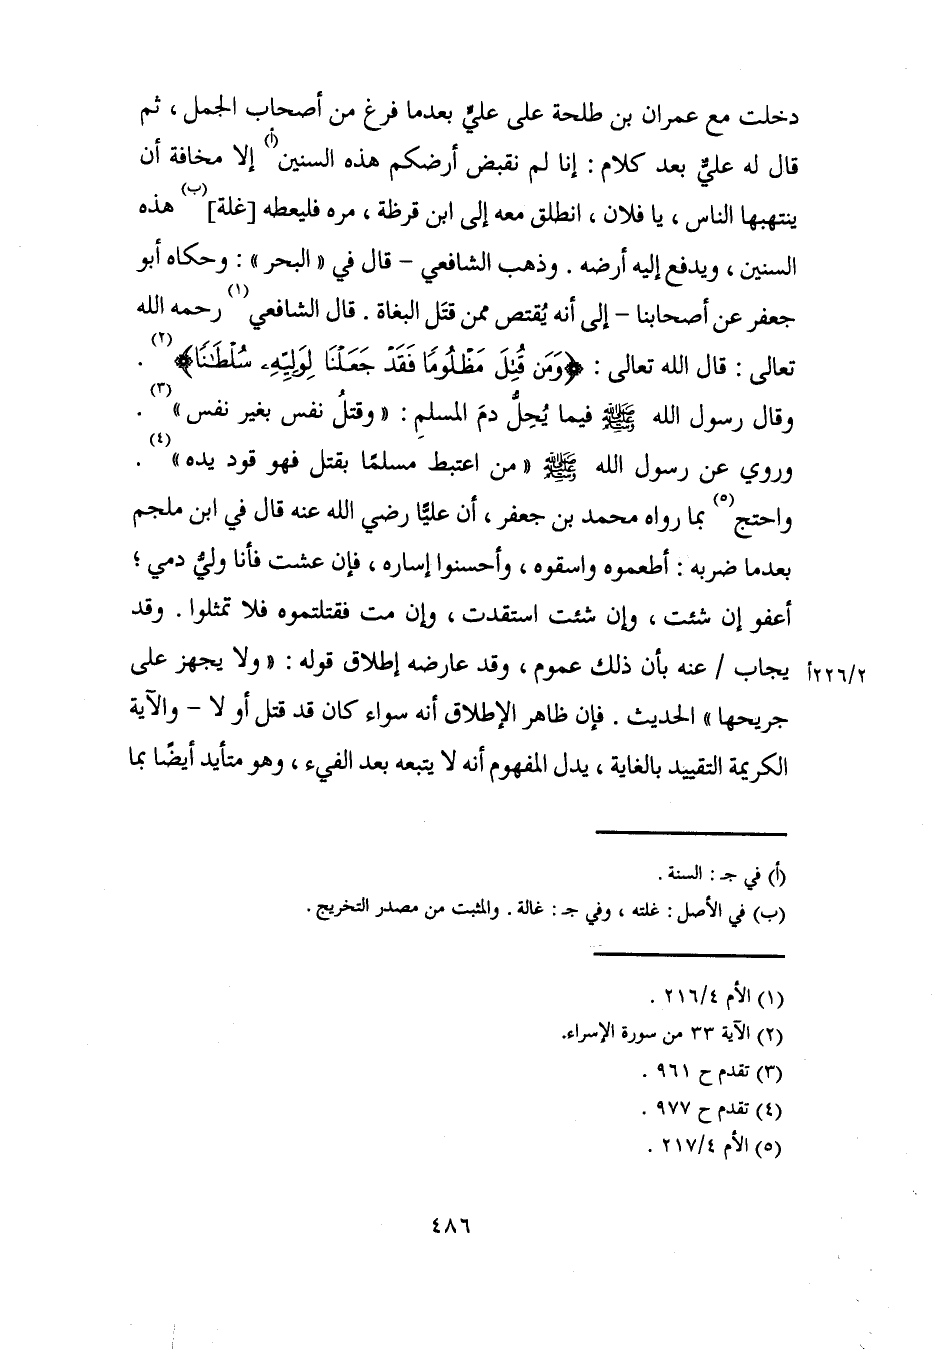 دخلت مع عمران بن طلحة على عليٍّ بعدما فرغ من أصحاب الجمل ، ثم
قال له عليٌّ بعد كلام : إنا لم نقبض أرضكم هذه السنين(أ) إلا مخافة أن
ينتهبها الناس ، يا فلان ، انطلق معه إلى ابن قرظة ، مره فليعطه [غلة](ب) هذه
السنين ، ويدفع إليه أرضه . وذهب الشافعي – قال في « البحر » : وحكاه أبو
جعفر عن أصحابنا – إلى أنه يُقتص ممن قتَل البغاة . قال الشافعي(١) رحمه الله
تعالى : قال الله تعالى : ﴿وَمَن قُتِلَ مَظْلُومًا فَقَدْ جَعَلْنَا لِوَلِيِّهِۦ سُلْطَٰنًا﴾(٢) .
وقال رسول الله ﷺ فيما يُحِلُّ دمَ المسلمِ : « وقتلُ نفس بغير نفس »(٣) .
وروي عن رسول الله ﷺ « من اعتبط مسلمًا بقتل فهو قود يده »(٤) .
واحتج(٥) بما رواه محمد بن جعفر ، أن عليًّا رضي الله عنه قال في ابن ملجم
بعدما ضربه : أطعموه واسقوه ، وأحسنوا إساره ، فإن عشت فأنا وليُّ دمي ؛
أعفو إن شئت ، وإن شئت استقدت ، وإن مت فقتلتموه فلا تمثلوا . وقد
٢٢٦/٢أ يجاب / عنه بأن ذلك عموم ، وقد عارضه إطلاق قوله : « ولا يجهز على
جريحها » الحديث . فإن ظاهر الإطلاق أنه سواء كان قد قتل أو لا – والآية
الكريمة التقييد بالغاية ، يدل المفهوم أنه لا يتبعه بعد الفيء ، وهو متأيد أيضًا بما
(أ) في جـ : السنة .
(ب) في الأصل : غلته ، وفي جـ : غالة . والمثبت من مصدر التخريج .
(١) الأم ٢١٦/٤ .
(٢) الآية ٣٣ من سورة الإسراء.
(٣) تقدم ح ٩٦١ .
(٤) تقدم ح ٩٧٧ .
(٥) الأم ٢١٧/٤ .
٤٨٦